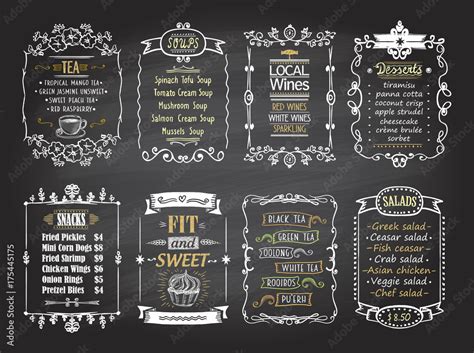 TEA
• TROPICAL MANGO TEA
• GREEN JASMINE UNSWEET
• SWEET PEACH TEA
• RED RASPBERRY
SOUPS
Spinach Tofu Soup
Tomato Cream Soup
Mushroom Soup
Salmon Cream Soup
Mussels Soup
LOCAL
Wines
RED WINES
WHITE WINES
SPARKLING
Desserts
tiramisu
panna cotta
coconut crisp
chocolate brownie
cheesecake
crème brulée
sorbet
SNACKS
Fried Pickles $4
Mini Corn Dogs $4
Fried Shrimp $9
Chicken Wings $6
Onion Rings $4
Pretzel Bites $4
FIT
and
SWEET
BLACK TEA
GREEN TEA
OOLONG
WHITE TEA
ROOIBOS
PU'ERH
SALADS
• Greek salad •
• Caesar salad •
• Fish ceasar •
• Crab salad •
• Asian chicken •
• Veggie salad •
• Chef salad •
$ 8.50
Adobe Stock | #175445175